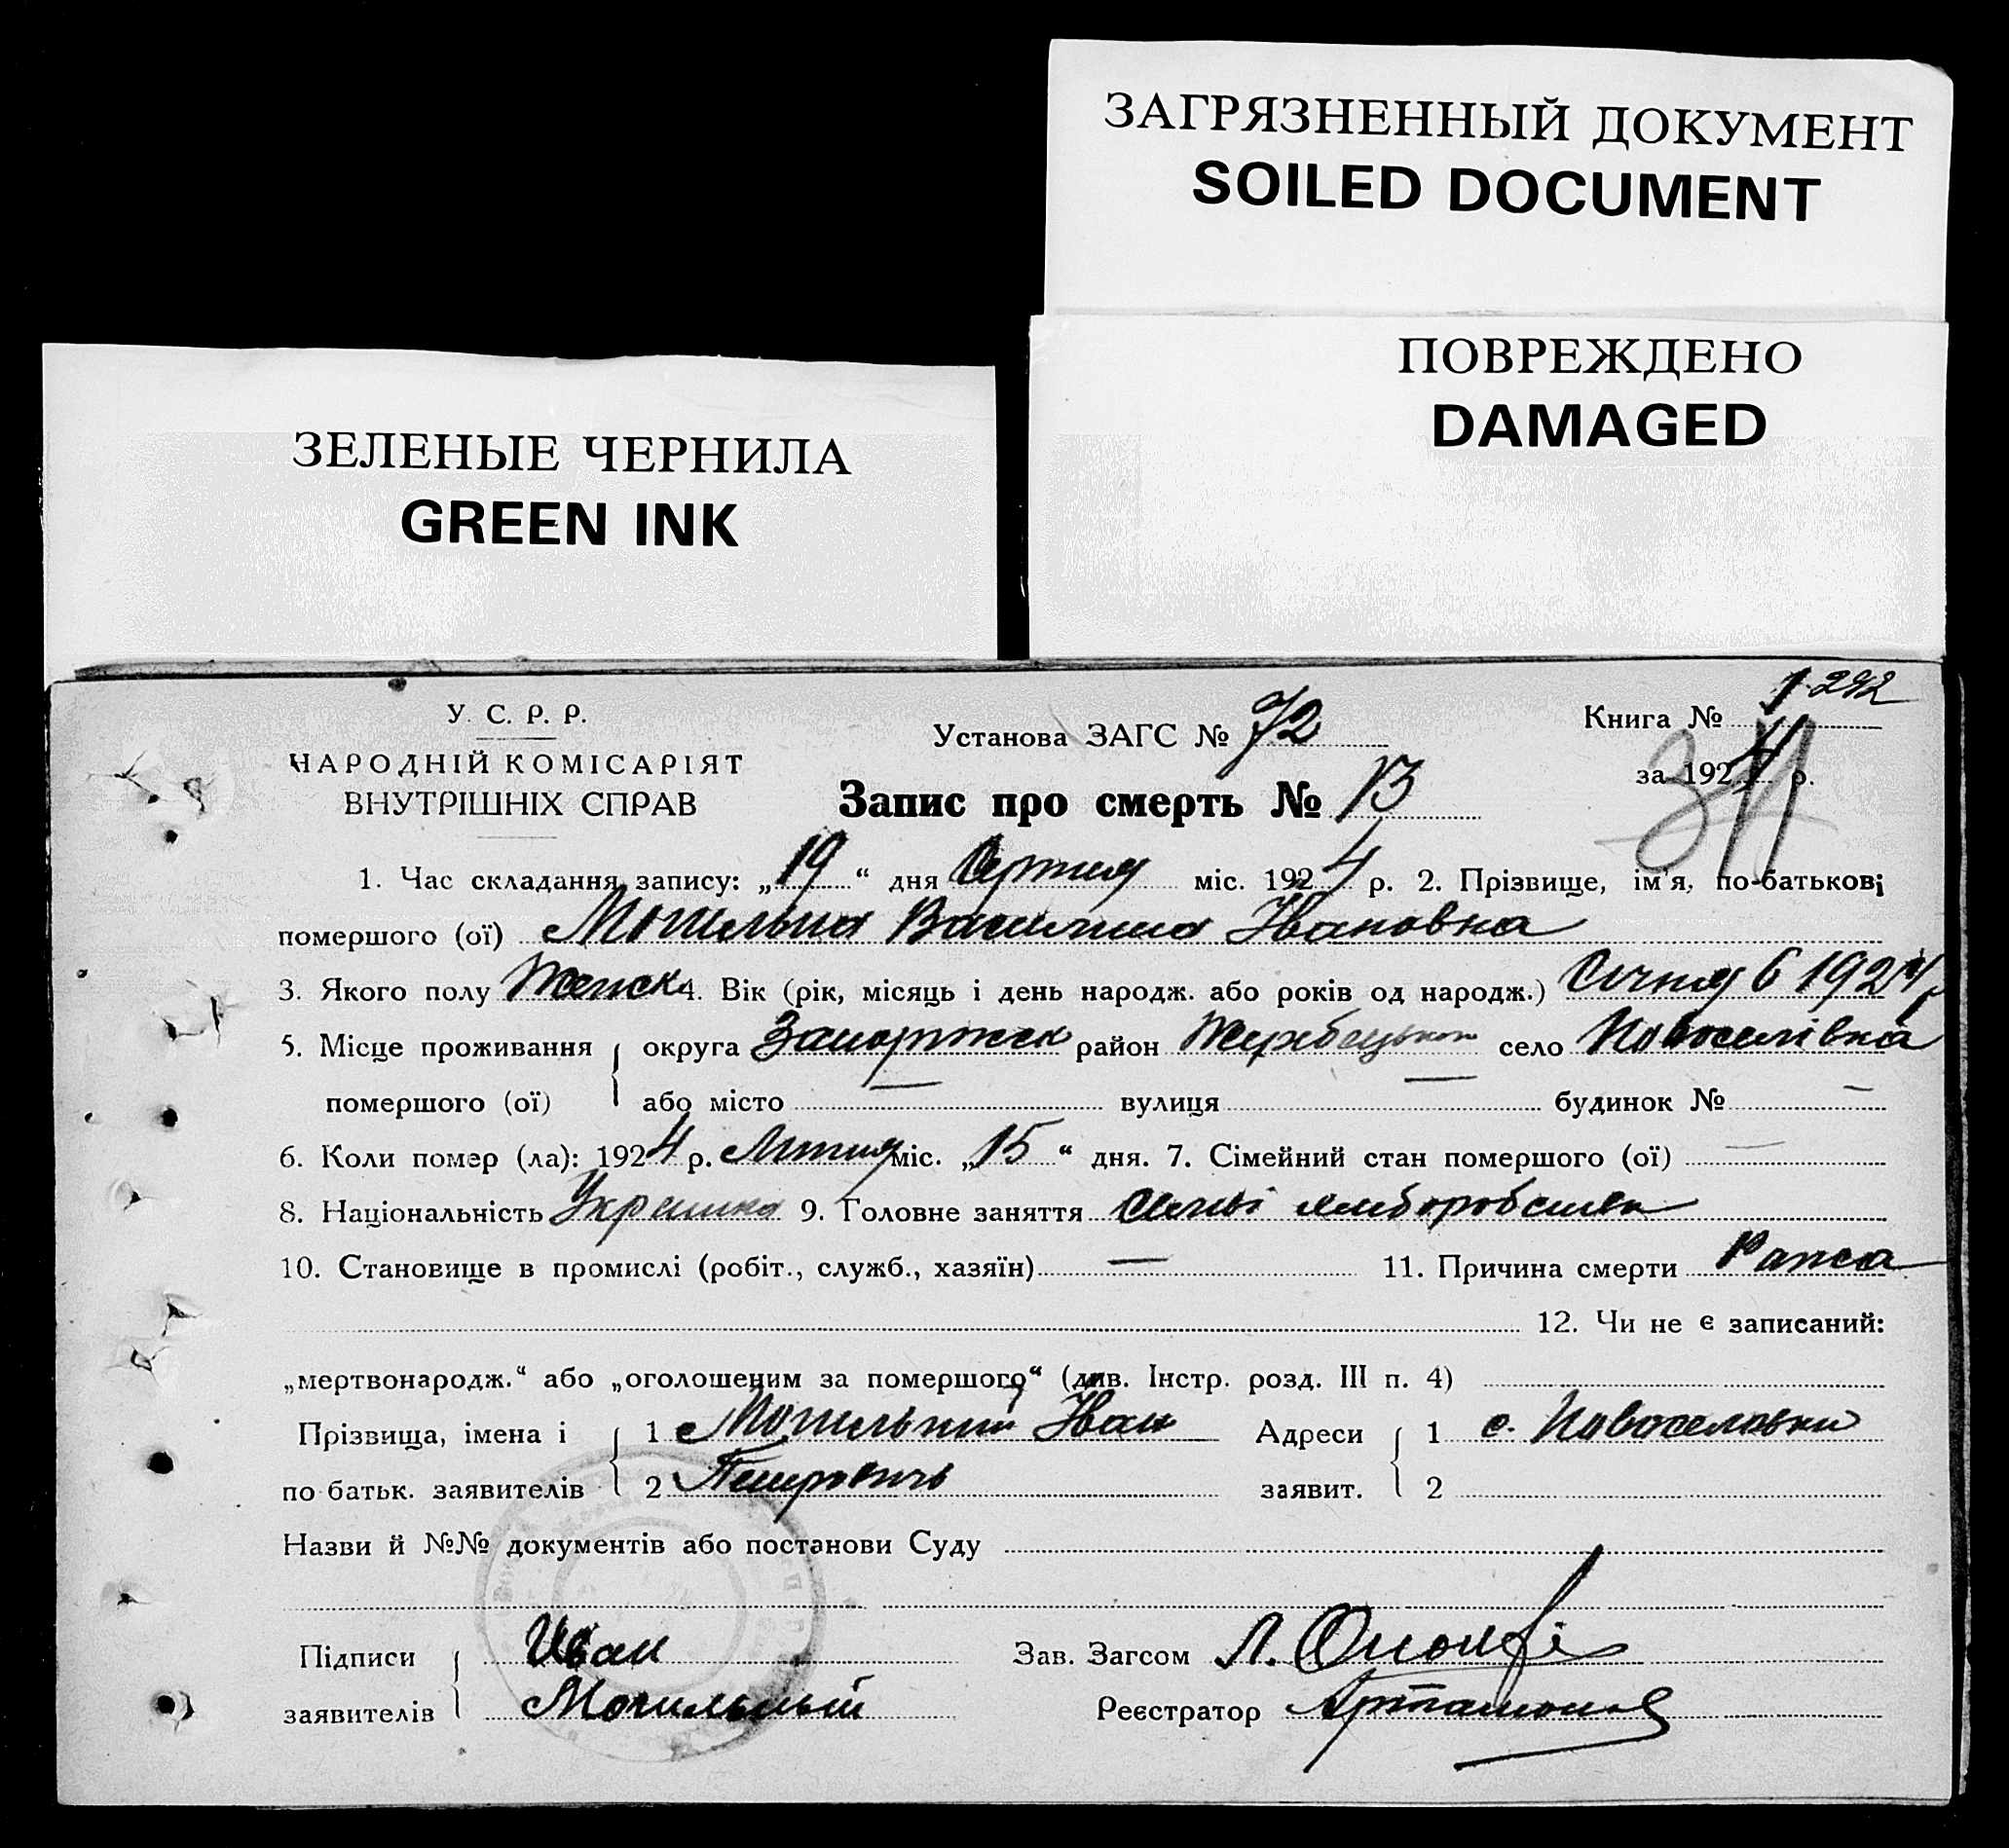 ЗАГРЯЗНЕННЫЙ ДОКУМЕНТ
SOILED DOCUMENT
ПОВРЕЖДЕНО
DAMAGED
ЗЕЛЕНЫЕ ЧЕРНИЛА
GREEN INK
У. С. Р. Р.
НАРОДНІЙ КОМІСАРІЯТ
ВНУТРІШНІХ СПРАВ
Установа ЗАГС № 72
Запис про смерть № 13
Книга № 1-292
за 1924 р.
34
1. Час складання запису: „19“ дня міс. 1924 р. 2. Прізвище, ім'я, по-батькові
помершого (ої) Могильна Василина Ивановна
3. Якого полу Женск 4. Вік (рік, місяць і день народж. або років од народж.) Січня 6 1924 р
5. Місце проживання округа Запоріжск район Жеребецького село Новоселівка
помершого (ої) або місто — вулиця — будинок № —
6. Коли помер (ла): 1924 р. міс. „15“ дня. 7. Сімейний стан помершого (ої) —
8. Національність Украинка 9. Головне заняття хлибороб
10. Становище в промислі (робіт., служб., хазяїн) — 11. Причина смерти
12. Чи не є записаний:
„мертвонародж.“ або „оголошеним за помершого“ (див. Інстр. розд. III п. 4)
Прізвища, імена і 1 Могильний Иван Адреси 1 с. Новоселовки
по батьк. заявителів 2 Петрович заявит. 2
Назви й №№ документів або постанови Суду
Підписи Иван Зав. Загсом Л.
заявителів Могильный Реєстратор Артамонов